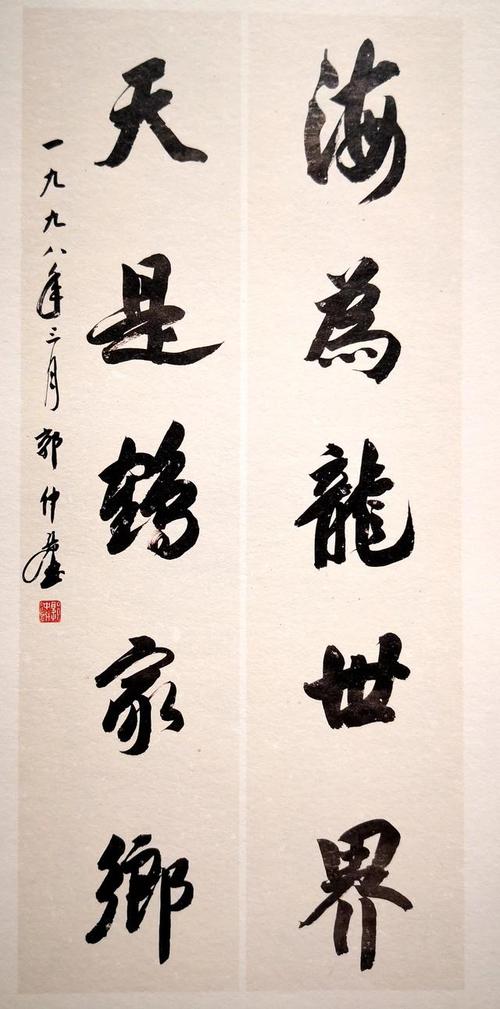 海為龍世界
天是鶴家鄉
一九九八年三月 郭仲